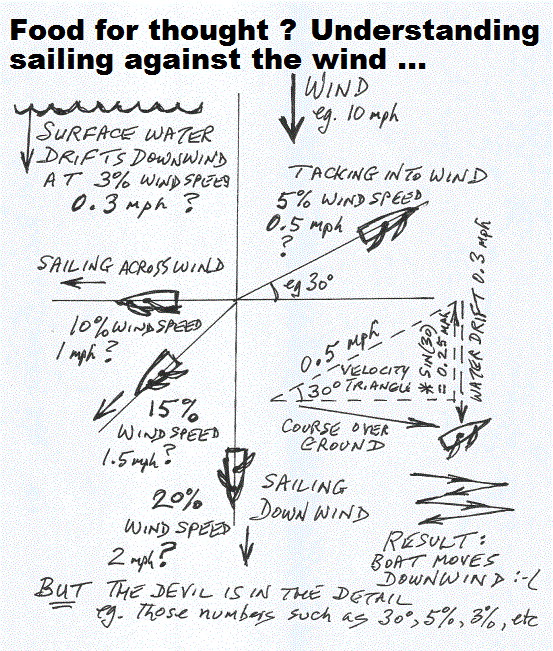 Food for thought ? Understanding
sailing against the wind ...
WIND
eg. 10 mph
SURFACE WATER
DRIFTS DOWNWIND
AT 3% WINDSPEED
0.3 mph ?
TACKING INTO WIND
5% WINDSPEED
0.5 mph
?
eg 30°
SAILING ACROSS WIND
10% WINDSPEED
1 mph ?
15%
WINDSPEED
1.5 mph ?
20%
WIND SPEED
2 mph ?
SAILING
DOWNWIND
0.5 mph
VELOCITY
TRIANGLE
30°
* SIN(30)
= 0.25 MPH
WATER DRIFT 0.3 mph
COURSE OVER
GROUND
RESULT:
BOAT MOVES
DOWNWIND :-(
BUT THE DEVIL IS IN THE DETAIL
eg. Those numbers such as 30°, 5%, 3%, etc